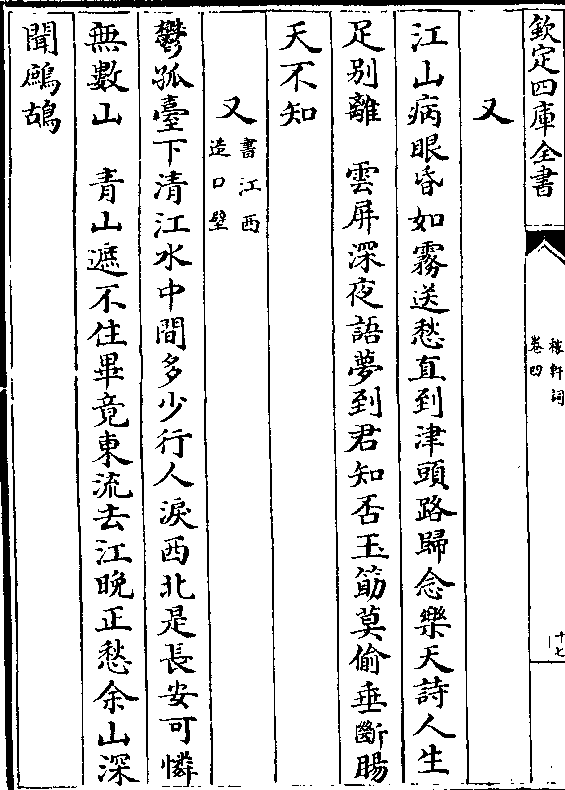 欽定四庫全書
稼軒詞
卷四
十七
又
江山病眼昏如霧送愁直到津頭路歸念樂天詩人生
足别離　雲屏深夜語夢到君知否玉筯莫偷垂斷腸
天不知
又
書江西
造口壁
鬱孤臺下清江水中間多少行人淚西北是長安可憐
無數山　青山遮不住畢竟東流去江晚正愁余山深
聞鷓鴣